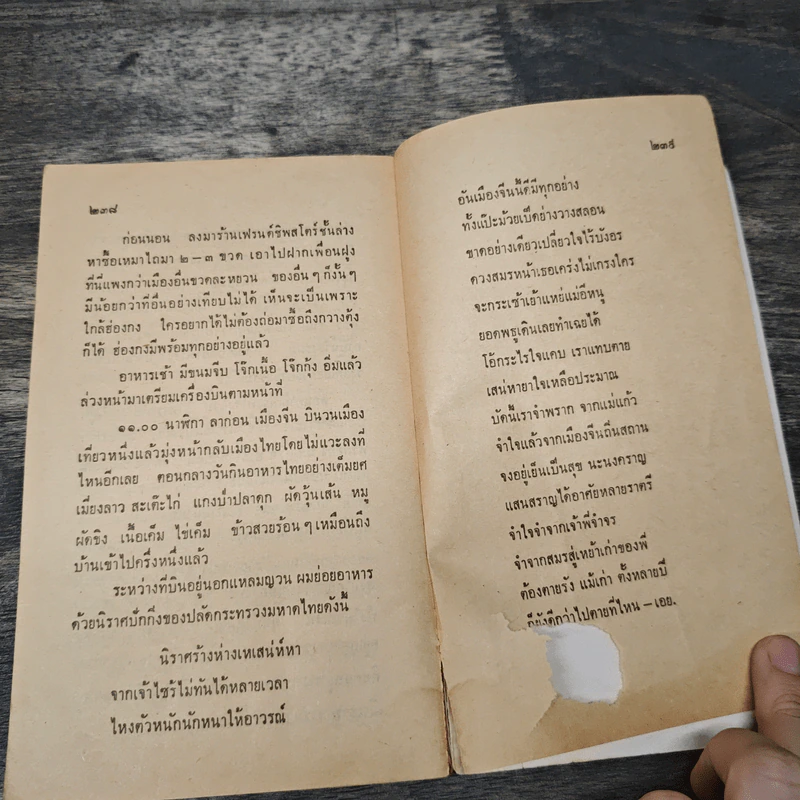 ๒๓๘
ก่อนนอน ลงมาร้านเฟรนด์ชิพสโตร์ชั้นล่าง
หาซื้อเหมาไถมา ๒—๓ ขวด เอาไปฝากเพื่อนฝูง
ที่นี่แพงกว่าเมืองอื่นขวดละหยวน ของอื่น ๆ ก็งั้น ๆ
มีน้อยกว่าที่อื่นอย่างเทียบไม่ได้ เห็นจะเป็นเพราะ
ใกล้ฮ่องกง ใครอยากได้ไม่ต้องถ่อมาซื้อถึงกวางตุ้ง
ก็ได้ ฮ่องกงมีพร้อมทุกอย่างอยู่แล้ว
อาหารเช้า มีขนมจีบ โจ๊กเนื้อ โจ๊กกุ้ง อิ่มแล้ว
ล่วงหน้ามาเตรียมเครื่องบินตามหน้าที่
๑๑.๐๐ นาฬิกา ลาก่อน เมืองจีน บินวนเมือง
เที่ยวหนึ่งแล้วมุ่งหน้ากลับเมืองไทยโดยไม่แวะลงที่
ไหนอีกเลย ตอนกลางวันกินอาหารไทยอย่างเต็มยศ
เมี่ยงลาว สะเต๊ะไก่ แกงป่าปลาดุก ผัดวุ้นเส้น หมู
ผัดขิง เนื้อเค็ม ไข่เค็ม ข้าวสวยร้อน ๆ เหมือนถึง
บ้านเข้าไปครึ่งหนึ่งแล้ว
ระหว่างที่บินอยู่นอกแหลมญวน ผมย่อยอาหาร
ด้วยนิราศปักกิ่งของปลัดกระทรวงมหาดไทยดังนี้
นิราศร้างห่างเหเสน่ห์หา
จากเจ้าไซร้ไม่ทันได้หลายเวลา
ไหงตัวหนักนักหนาให้อาวรณ์
๒๓๙
อันเมืองจีนนี้ดีมีทุกอย่าง
ทั้งแป๊ะม้วยเป็ดย่างวางสลอน
ขาดอย่างเดียวเปลี่ยวใจไร้บังอร
ดวงสมรหน้าเธอเคร่งไม่เกรงใคร
จะกระเซ้าเย้าแหย่แม่อีหนู
ยอดพธูเดินเลยทำเฉยได้
โอ้กระไรใจแคบ เราแทบตาย
เสน่หายาใจเหลือประมาณ
บัดนี้เราจำพราก จากแม่แก้ว
จำใจแล้วจากเมืองจีนถิ่นสถาน
จงอยู่เย็นเป็นสุข นะนงคราญ
แสนสราญได้อาศัยหลายราตรี
จำใจจำจากเจ้าพี่จำจร
จำจากสมรสู่เหย้าเก่าของพี่
ต้องตายรัง แม้เก่า ตั้งหลายปี
ก็ยังดีกว่าไปตายที่ไหน — เอย.